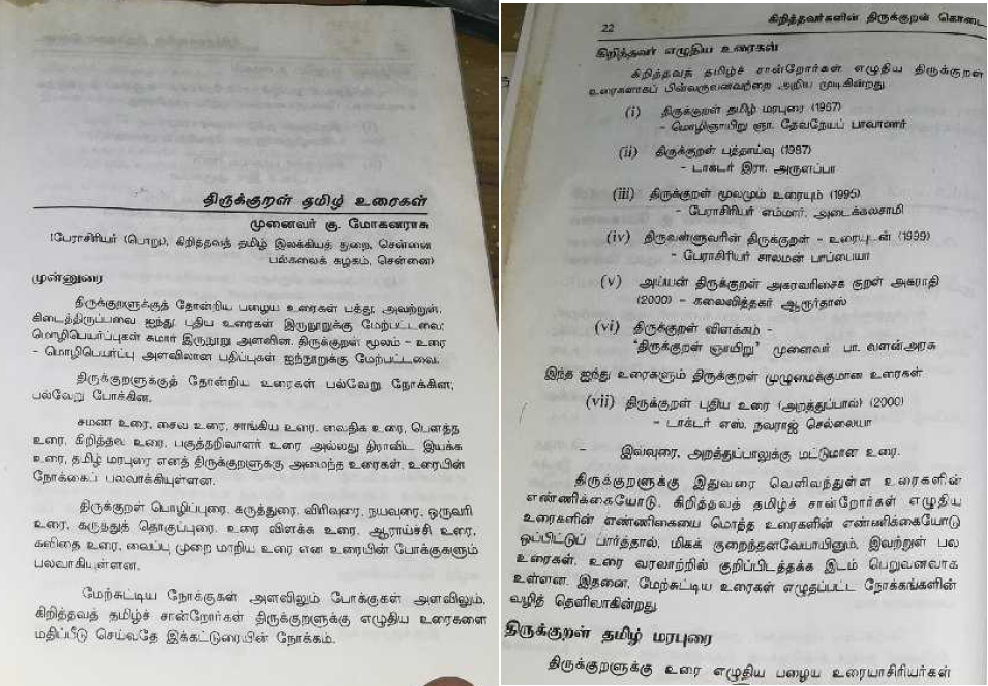 திருக்குறள் தமிழ் உரைகள்
முனைவர் கு. மோகனராசு
(பேராசிரியர் (பொறு), கிறித்தவத் தமிழ் இலக்கியத் துறை, சென்னை
பல்கலைக் கழகம், சென்னை)
முன்னுரை
திருக்குறளுக்குத் தோன்றிய பழைய உரைகள் பத்து; அவற்றுள்,
கிடைத்திருப்பவை ஐந்து; புதிய உரைகள் இருநூறுக்கு மேற்பட்டவை;
மொழிபெயர்ப்புகள் சுமார் இருநூறு அளவின. திருக்குறள் மூலம் – உரை
– மொழிபெயர்ப்பு அளவிலான பதிப்புகள் ஐந்நூறுக்கு மேற்பட்டவை.
திருக்குறளுக்குத் தோன்றிய உரைகள் பல்வேறு நோக்கின;
பல்வேறு போக்கின.
சமண உரை, சைவ உரை, சாங்கிய உரை, வைதிக உரை, பௌத்த
உரை, கிறித்தவ உரை, பகுத்தறிவாளர் உரை அல்லது திராவிட இயக்க
உரை, தமிழ் மரபுரை எனத் திருக்குறளுக்கு அமைந்த உரைகள், உரையின்
நோக்கைப் பலவாக்கியுள்ளன.
திருக்குறள் பொழிப்புரை, கருத்துரை, விரிவுரை, நயவுரை, ஒருவரி
உரை, கருத்துத் தொகுப்புரை, உரை விளக்க உரை, ஆராய்ச்சி உரை,
கவிதை உரை, வைப்பு முறை மாறிய உரை என உரையின் போக்குகளும்
பலவாகியுள்ளன.
மேற்சுட்டிய நோக்குகள் அளவிலும் போக்குகள் அளவிலும்,
கிறித்தவத் தமிழ்ச் சான்றோர்கள் திருக்குறளுக்கு எழுதிய உரைகளை
மதிப்பீடு செய்வதே இக்கட்டுரையின் நோக்கம்.
22
கிறித்தவர்களின் திருக்குறள் கொடை
கிறித்தவர் எழுதிய உரைகள்
கிறித்தவத் தமிழ்ச் சான்றோர்கள் எழுதிய திருக்குறள்
உரைகளாகப் பின்வருவனவற்றை அறிய முடிகின்றது
(i) திருக்குறள் தமிழ் மரபுரை (1967)
- மொழிஞாயிறு ஞா. தேவநேயப் பாவாணர்
(ii) திருக்குறள் புத்தாய்வு (1987)
- டாக்டர் இரா. அருளப்பா
(iii) திருக்குறள் மூலமும் உரையும் (1995)
- பேராசிரியர் எம்மார். அடைக்கலசாமி
(iv) திருவள்ளுவரின் திருக்குறள் – உரையுடன் (1999)
- பேராசிரியர் சாலமன் பாப்பையா
(v) அய்யன் திருக்குறள் அகரவரிசைக் குறள் அகராதி
(2000) – கலைவித்தகர் ஆரூர்தாஸ்
(vi) திருக்குறள் விளக்கம் -
"திருக்குறள் ஞாயிறு" முனைவர் பா. வளன்அரசு
இந்த ஐந்து உரைகளும் திருக்குறள் முழுமைக்குமான உரைகள்
(vii) திருக்குறள் புதிய உரை (அறத்துப்பால்) (2000)
- டாக்டர் எஸ். நவராஜ் செல்லையா
- இவ்வுரை, அறத்துப்பாலுக்கு மட்டுமான உரை.
திருக்குறளுக்கு இதுவரை வெளிவந்துள்ள உரைகளின்
எண்ணிக்கையோடு, கிறித்தவத் தமிழ்ச் சான்றோர்கள் எழுதிய
உரைகளின் எண்ணிகையை மொத்த உரைகளின் எண்ணிக்கையோடு
ஒப்பிட்டுப் பார்த்தால், மிகக் குறைந்தனவேயாயினும், இவற்றுள் பல
உரைகள், உரை வரலாற்றில் குறிப்பிடத்தக்க இடம் பெறுவனவாக
உள்ளன. இதனை, மேற்சுட்டிய உரைகள் எழுதப்பட்ட நோக்கங்களின்
வழித் தெளிவாகின்றது.
திருக்குறள் தமிழ் மரபுரை
திருக்குறளுக்கு உரை எழுதிய பழைய உரையாசிரியர்கள்